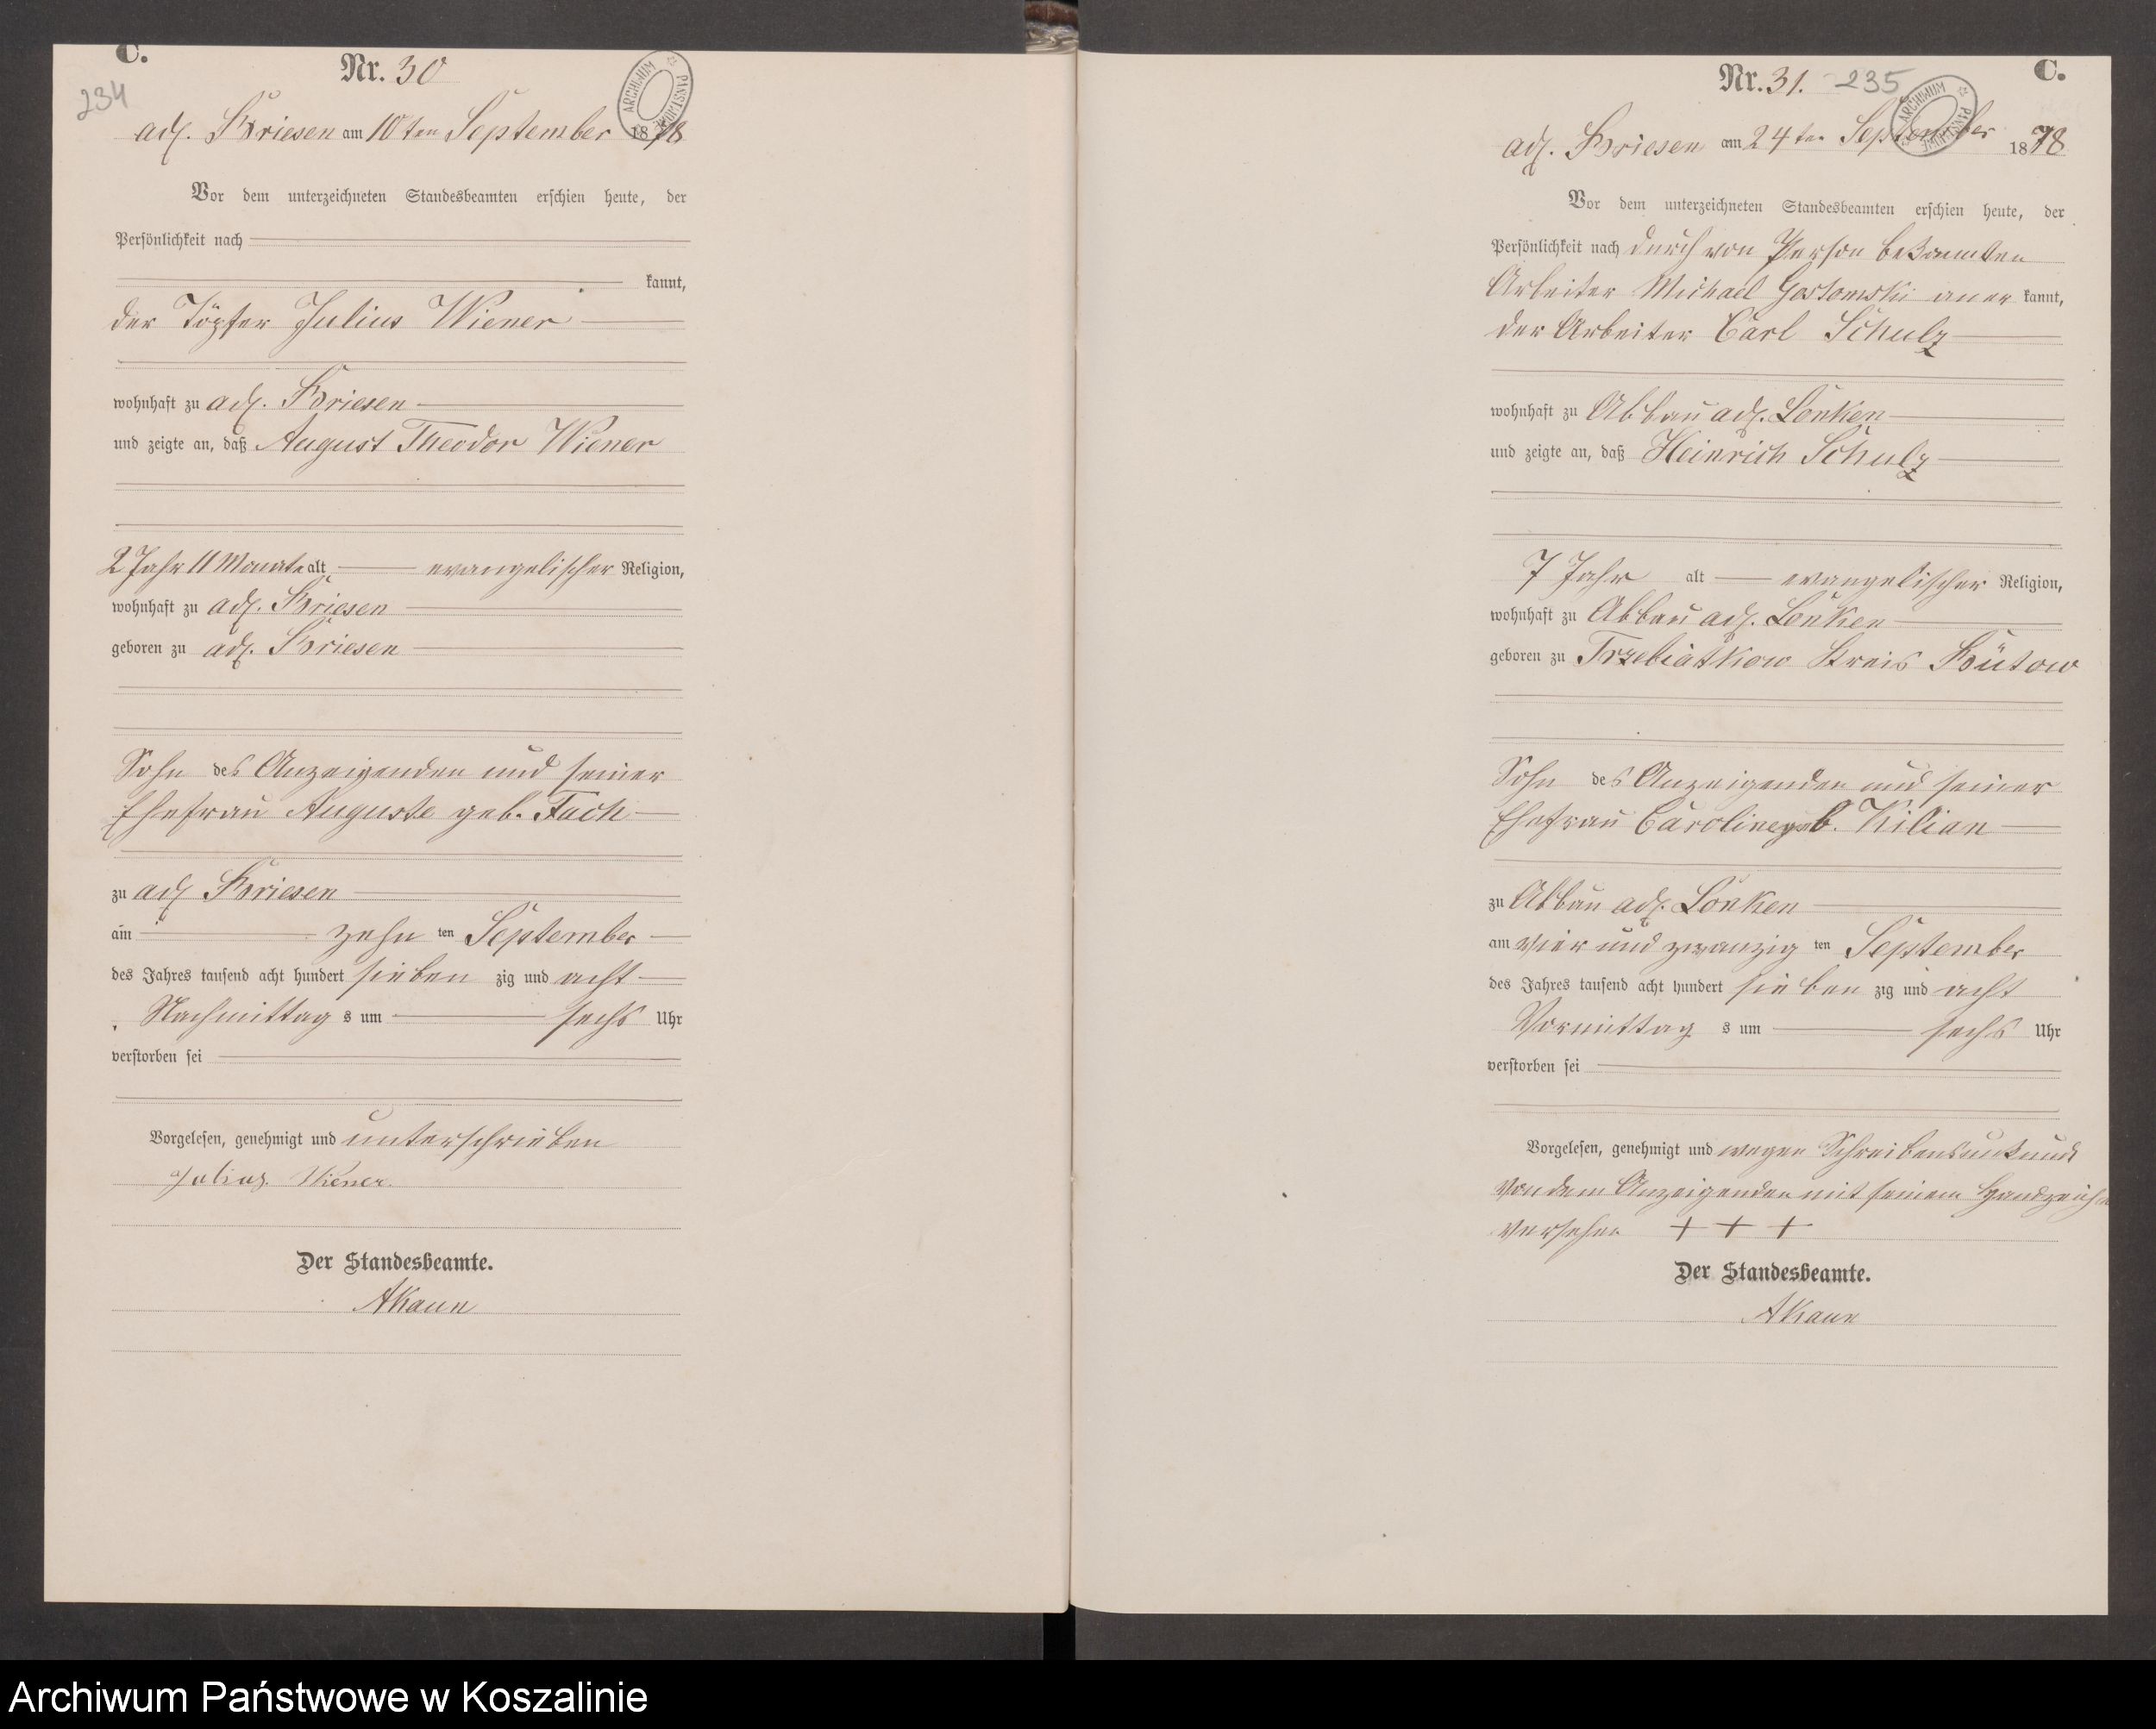 C.
Nr. 30
234
ARCHIWUM PAŃSTWOWE
adl. Briesen am 10ten September 1878
Vor dem unterzeichneten Standesbeamten erschien heute, der
Persönlichkeit nach
kannt,
der Töpfer Julius Wiener
wohnhaft zu adl. Briesen
und zeigte an, daß August Theodor Wiener
2 Jahr 11 Monate alt evangelischer Religion,
wohnhaft zu adl. Briesen
geboren zu adl. Briesen
Sohn des Anzeigenden und seiner
Ehefrau Auguste geb. Fach
zu adl Briesen
am zehn ten September
des Jahres tausend acht hundert sieben zig und acht
Nachmittag s um sechs Uhr
verstorben sei
Vorgelesen, genehmigt und unterschrieben
Julius. Wiener.
Der Standesbeamte.
AKaun
Nr. 31. 235
C.
ARCHIWUM PAŃSTWOWE
adl. Briesen am 24ten September 1878
Vor dem unterzeichneten Standesbeamten erschien heute, der
Persönlichkeit nach durch von Person bekannten
Arbeiter Michael Gostomski aner kannt,
der Arbeiter Carl Schulz
wohnhaft zu Abbau adl. Lonken
und zeigte an, daß Heinrich Schulz
7 Jahr alt evangelischer Religion,
wohnhaft zu Abbau adl. Lonken
geboren zu Trzebiatkow Kreis Bütow
Sohn des Anzeigenden und seiner
Ehefrau Caroline geb. Kilian
zu Abbau adl. Lonken
am vier und zwanzig ten September
des Jahres tausend acht hundert sieben zig und acht
Vormittag s um sechs Uhr
verstorben sei
Vorgelesen, genehmigt und wegen Schreibensunkunde
von dem Anzeigenden mit seinem Handzeichen
versehen + + +
Der Standesbeamte.
AKaun
Archiwum Państwowe w Koszalinie